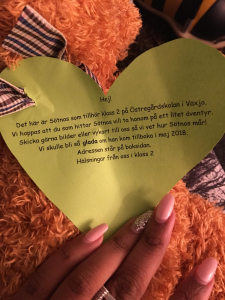 Hej!
Det här är Sötnos som tillhör klass 2 på Östregårdskolan i Växjö.
Vi hoppas att du som hittar Sötnos vill ta honom på ett litet äventyr.
Skicka gärna bilder eller vykort till oss så vi vet hur Sötnos mår!
Vi skulle bli så glada om han kom tillbaka i maj 2018.
Adressen står på baksidan.
Hälsningar från oss i klass 2